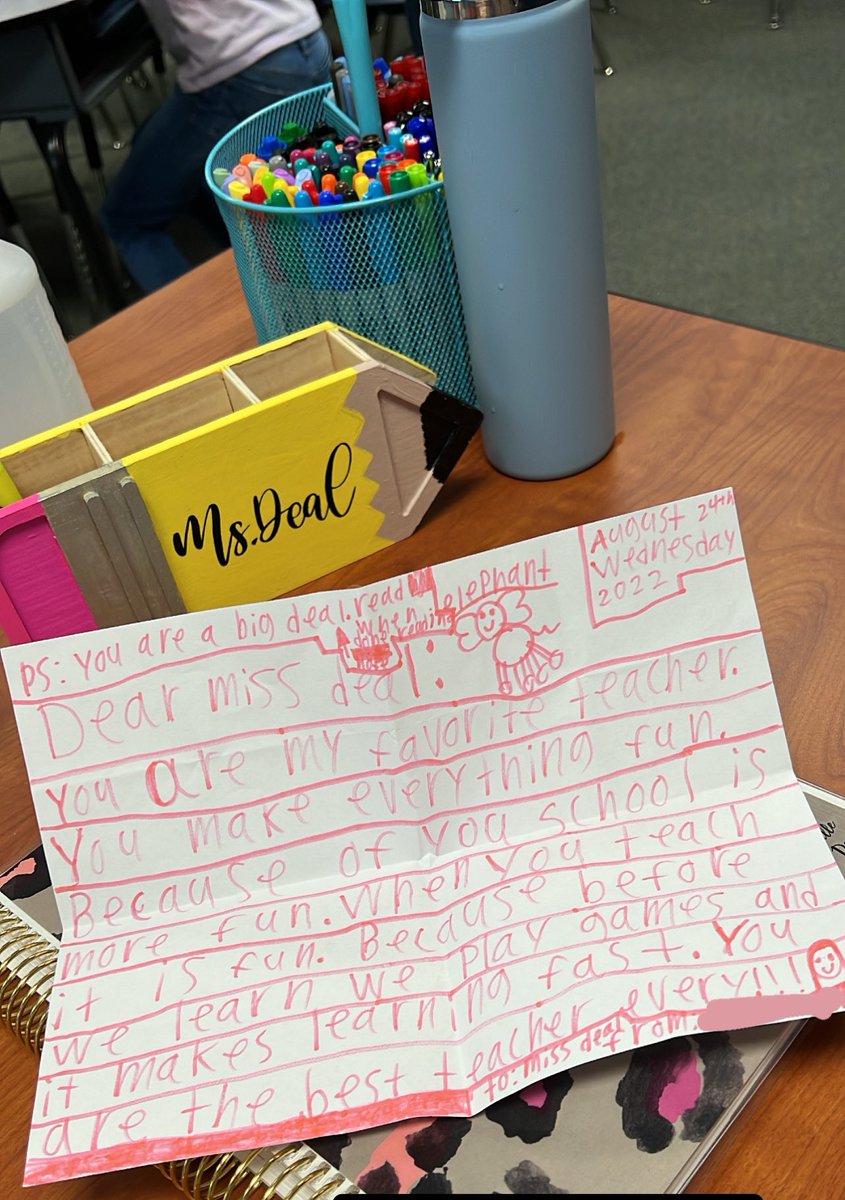 Ms. Deal
August 24th
Wednesday
2022
PS: you are a big deal. read
when
done reading
elephant
Dear miss deal:
you are my favorite teacher.
You make everything fun.
Because of you school is
more fun. When you teach
it is fun. Because before
we learn we play games and
it makes learning fast. You
are the best teacher every!!!
to: miss deal from: